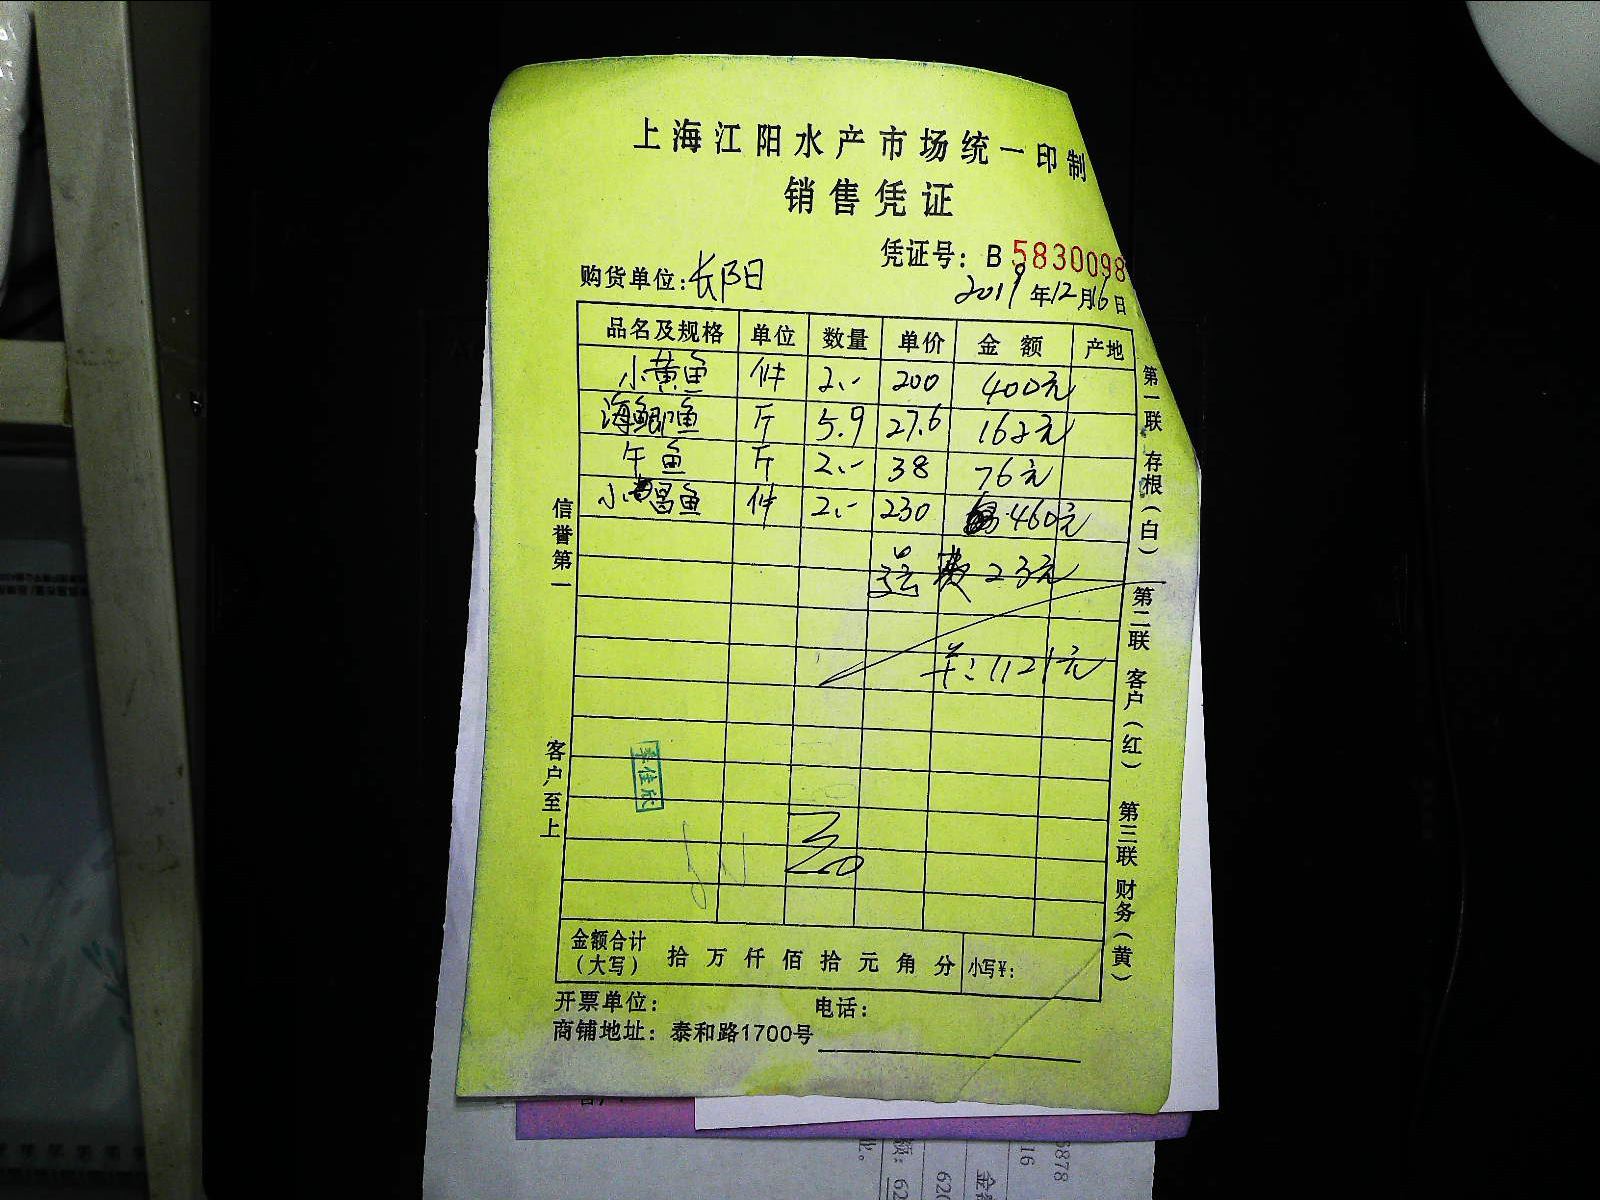 上海江阳水产市场统一印制
销售凭证
凭证号：B 5830098
购货单位：长阳
2019年12月16日
品名及规格 单位 数量 单价 金额 产地
小黄鱼 件 2.- 200 400元
海鲫鱼 斤 5.9 27.6 162元
牛鱼 斤 2.- 38 76元
小鲳鱼 件 2.- 230 460元
运费 23元
共：1121元
信誉第一
客户至上
李佳欣
第一联 存根（白）
第二联 客户（红）
第三联 财务（黄）
金额合计（大写） 拾 万 仟 佰 拾 元 角 分 小写¥：
开票单位： 电话：
商铺地址：泰和路1700号
6878
16
金
620
额：62